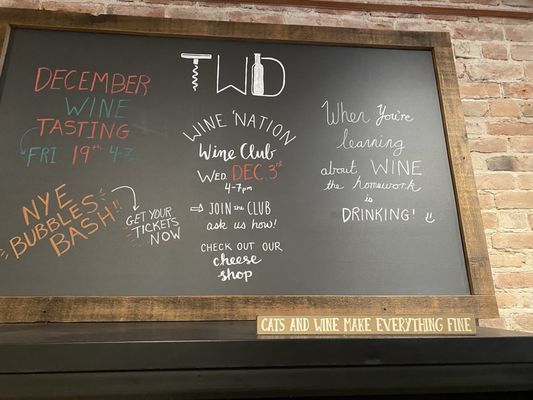 DECEMBER
WINE
TASTING
FRI 19th 4-7
NYE
BUBBLES
BASH!!
GET YOUR
TICKETS
NOW
TWD
WINE 'NATION
Wine Club
WED. DEC. 3rd
4-7pm
JOIN the CLUB
ask us how!
CHECK OUT OUR
cheese
shop
When You're
learning
about WINE
the homework
is
DRINKING!
CATS AND WINE MAKE EVERYTHING FINE